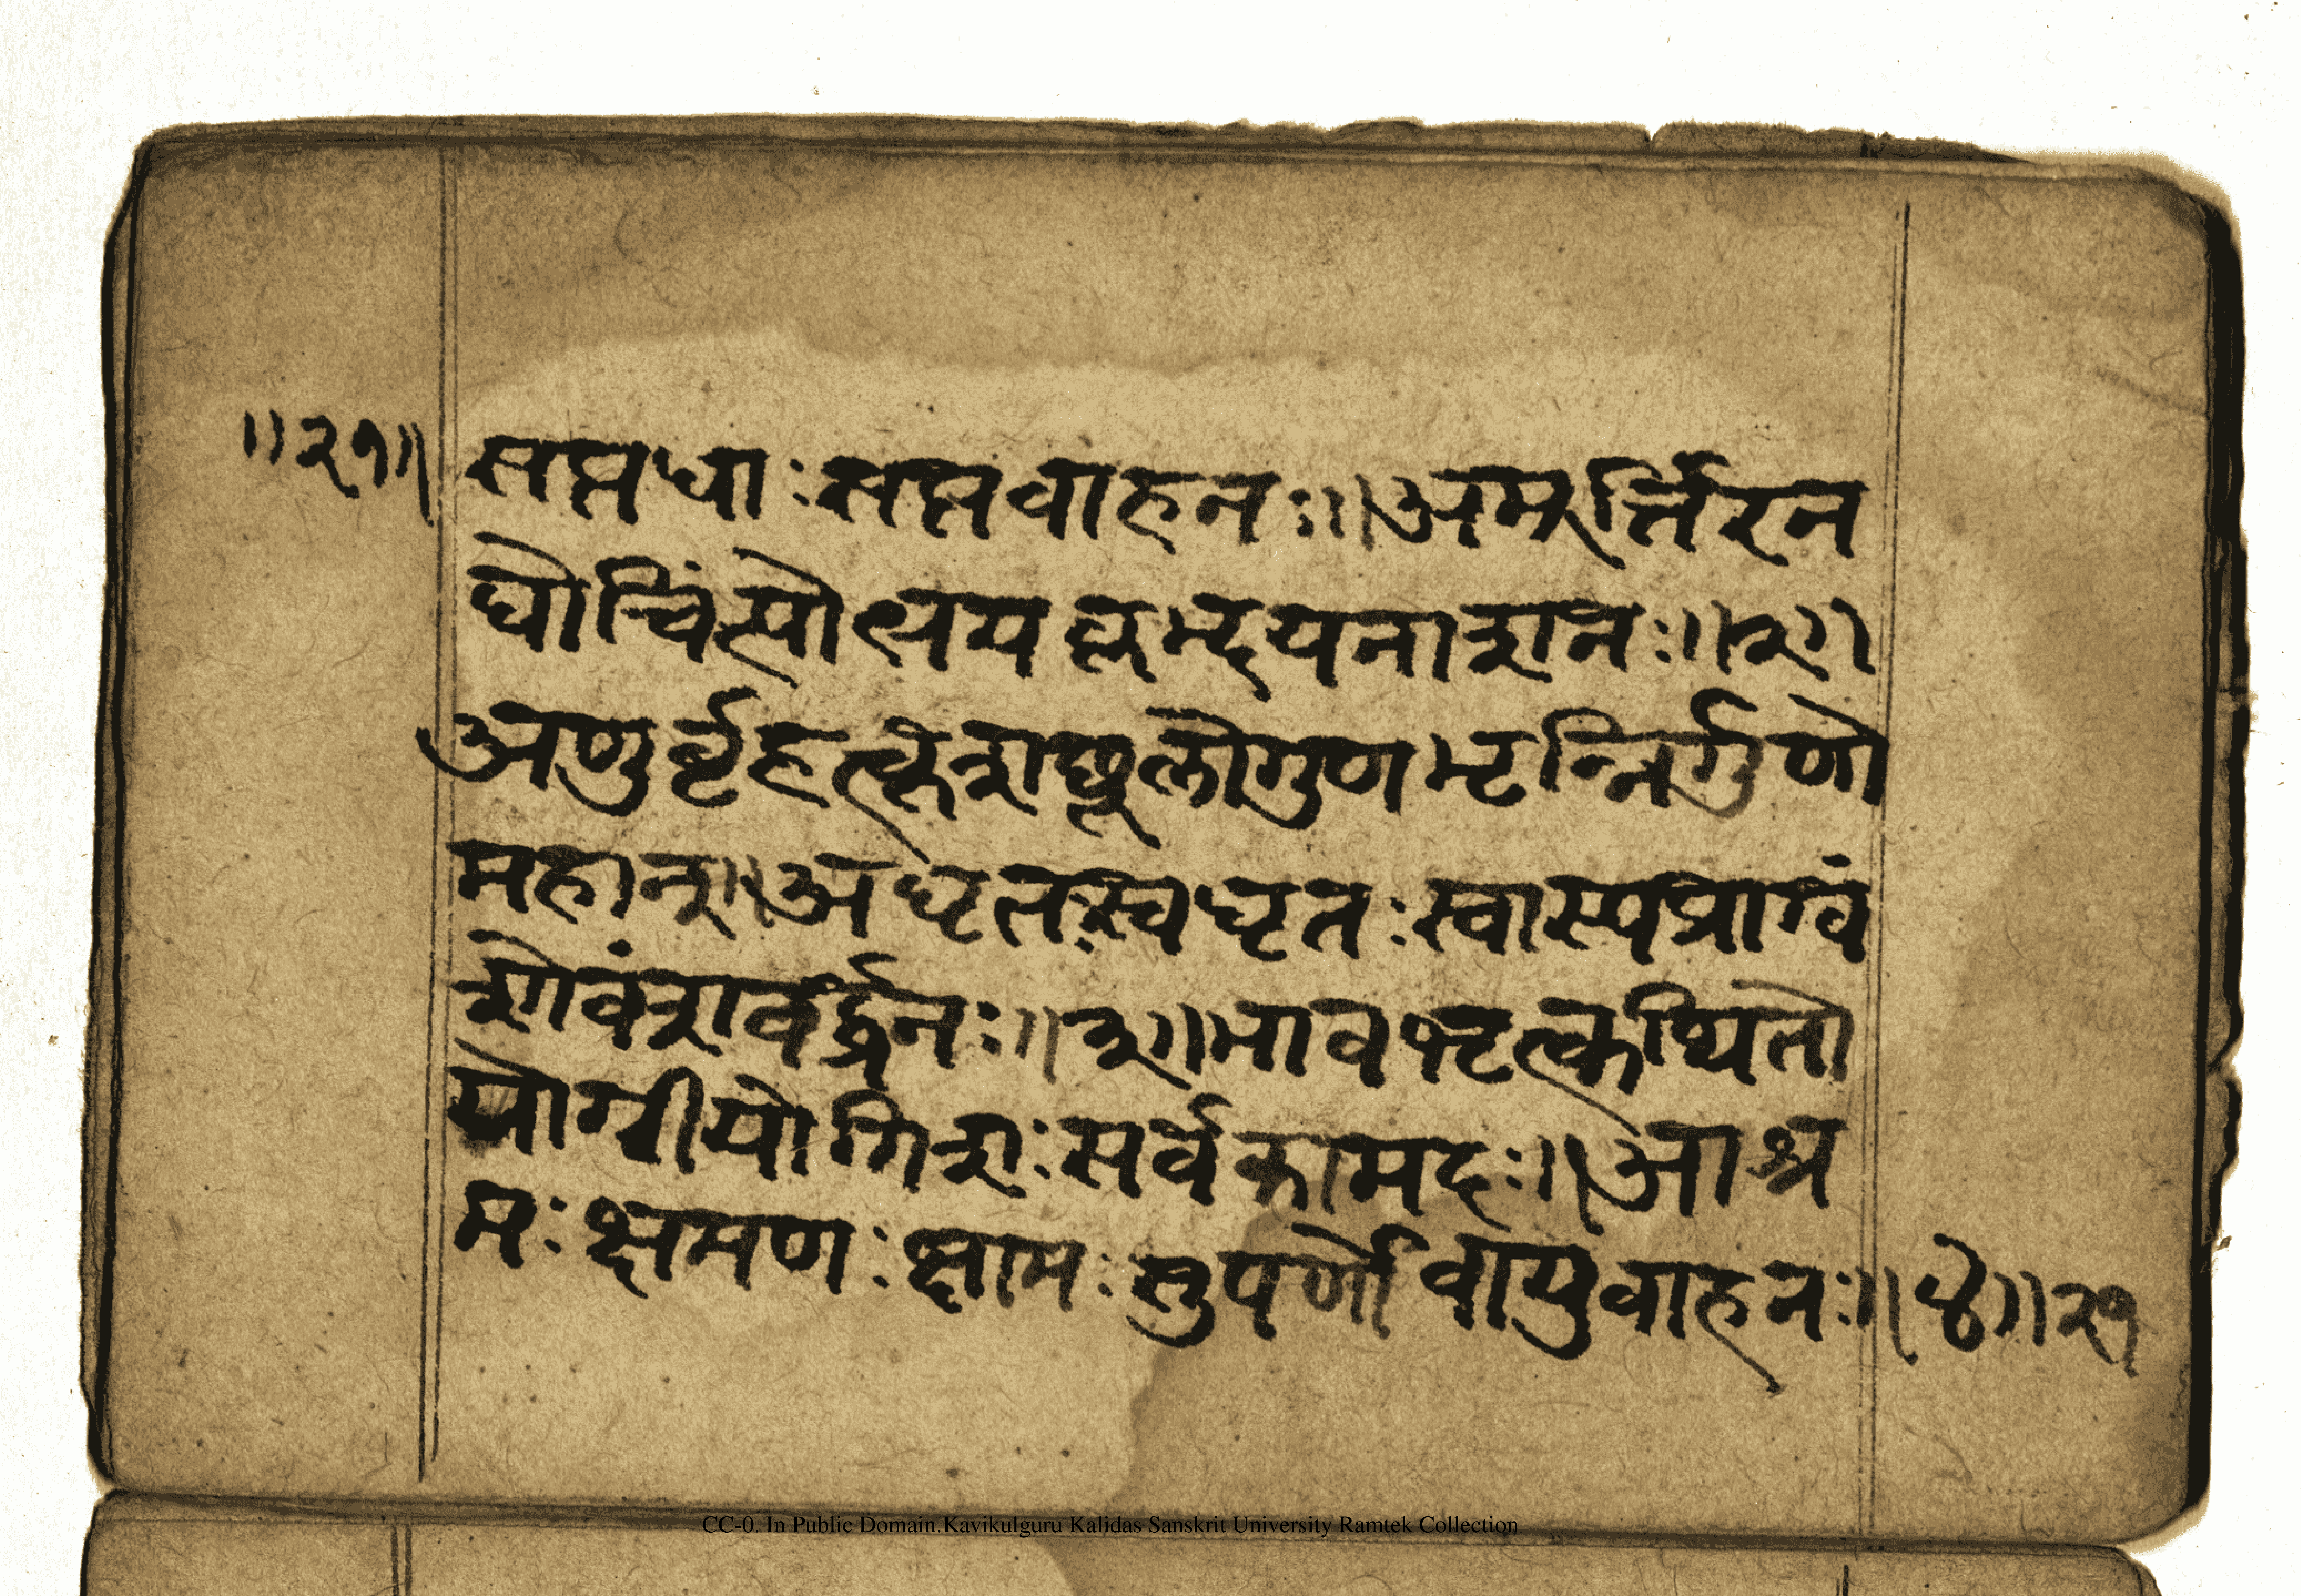 ॥२१॥ सप्तधाः सप्तवाहनः॥ अमूर्त्तिरन
घोचिंत्योत्भयकृम्द्दयनाशनः॥२॥
अणुर्व्वृहत्कृशस्थूलोगुणभृन्निर्गुणो
महान्॥ अधृतःस्वधृतः स्वास्यप्राग्वं
शोवंशवर्द्धनः॥३॥ भारभृत्कथितो
योगीयोगिशः सर्वकामदः॥ आश्र
मः क्षमणः क्षामः सुपर्णोवायुवाहनः॥४॥ २१
CC-0. In Public Domain.Kavikulguru Kalidas Sanskrit University Ramtek Collection